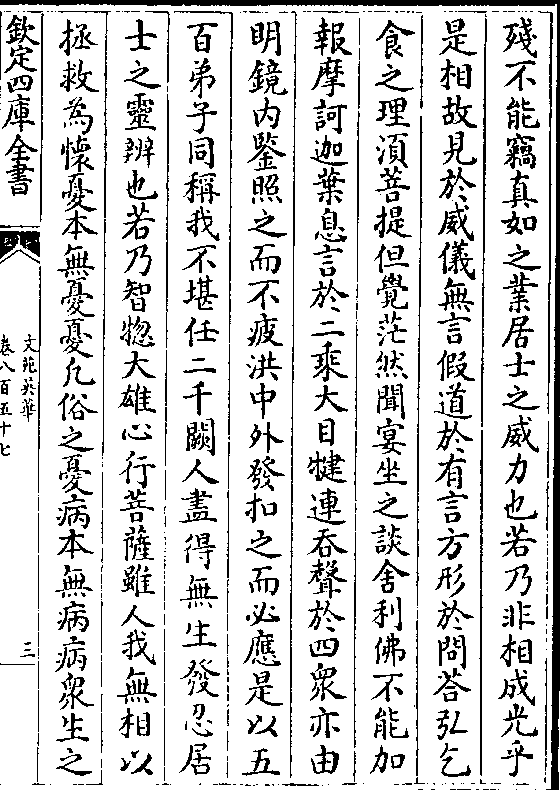 殘不能竊真如之業居士之威力也若乃非相成光乎
是相故見於威儀無言假道於有言方形於問荅弘乞
食之理湏菩提但覺茫然聞宴坐之談舍利佛不能加
報摩訶迦葉息言於二乗大目犍連吞聲於四衆亦由
明鏡内鑒照之而不疲洪中外發扣之而必應是以五
百弟子同稱我不堪任二千闕人盡得無生發忍居
士之靈辨也若乃智惣大雄心行菩薩雖人我無相以
拯救為懐憂本無憂憂凢俗之憂病本無病病衆生之
欽定四庫全書
文苑英華
卷八百五十七
三